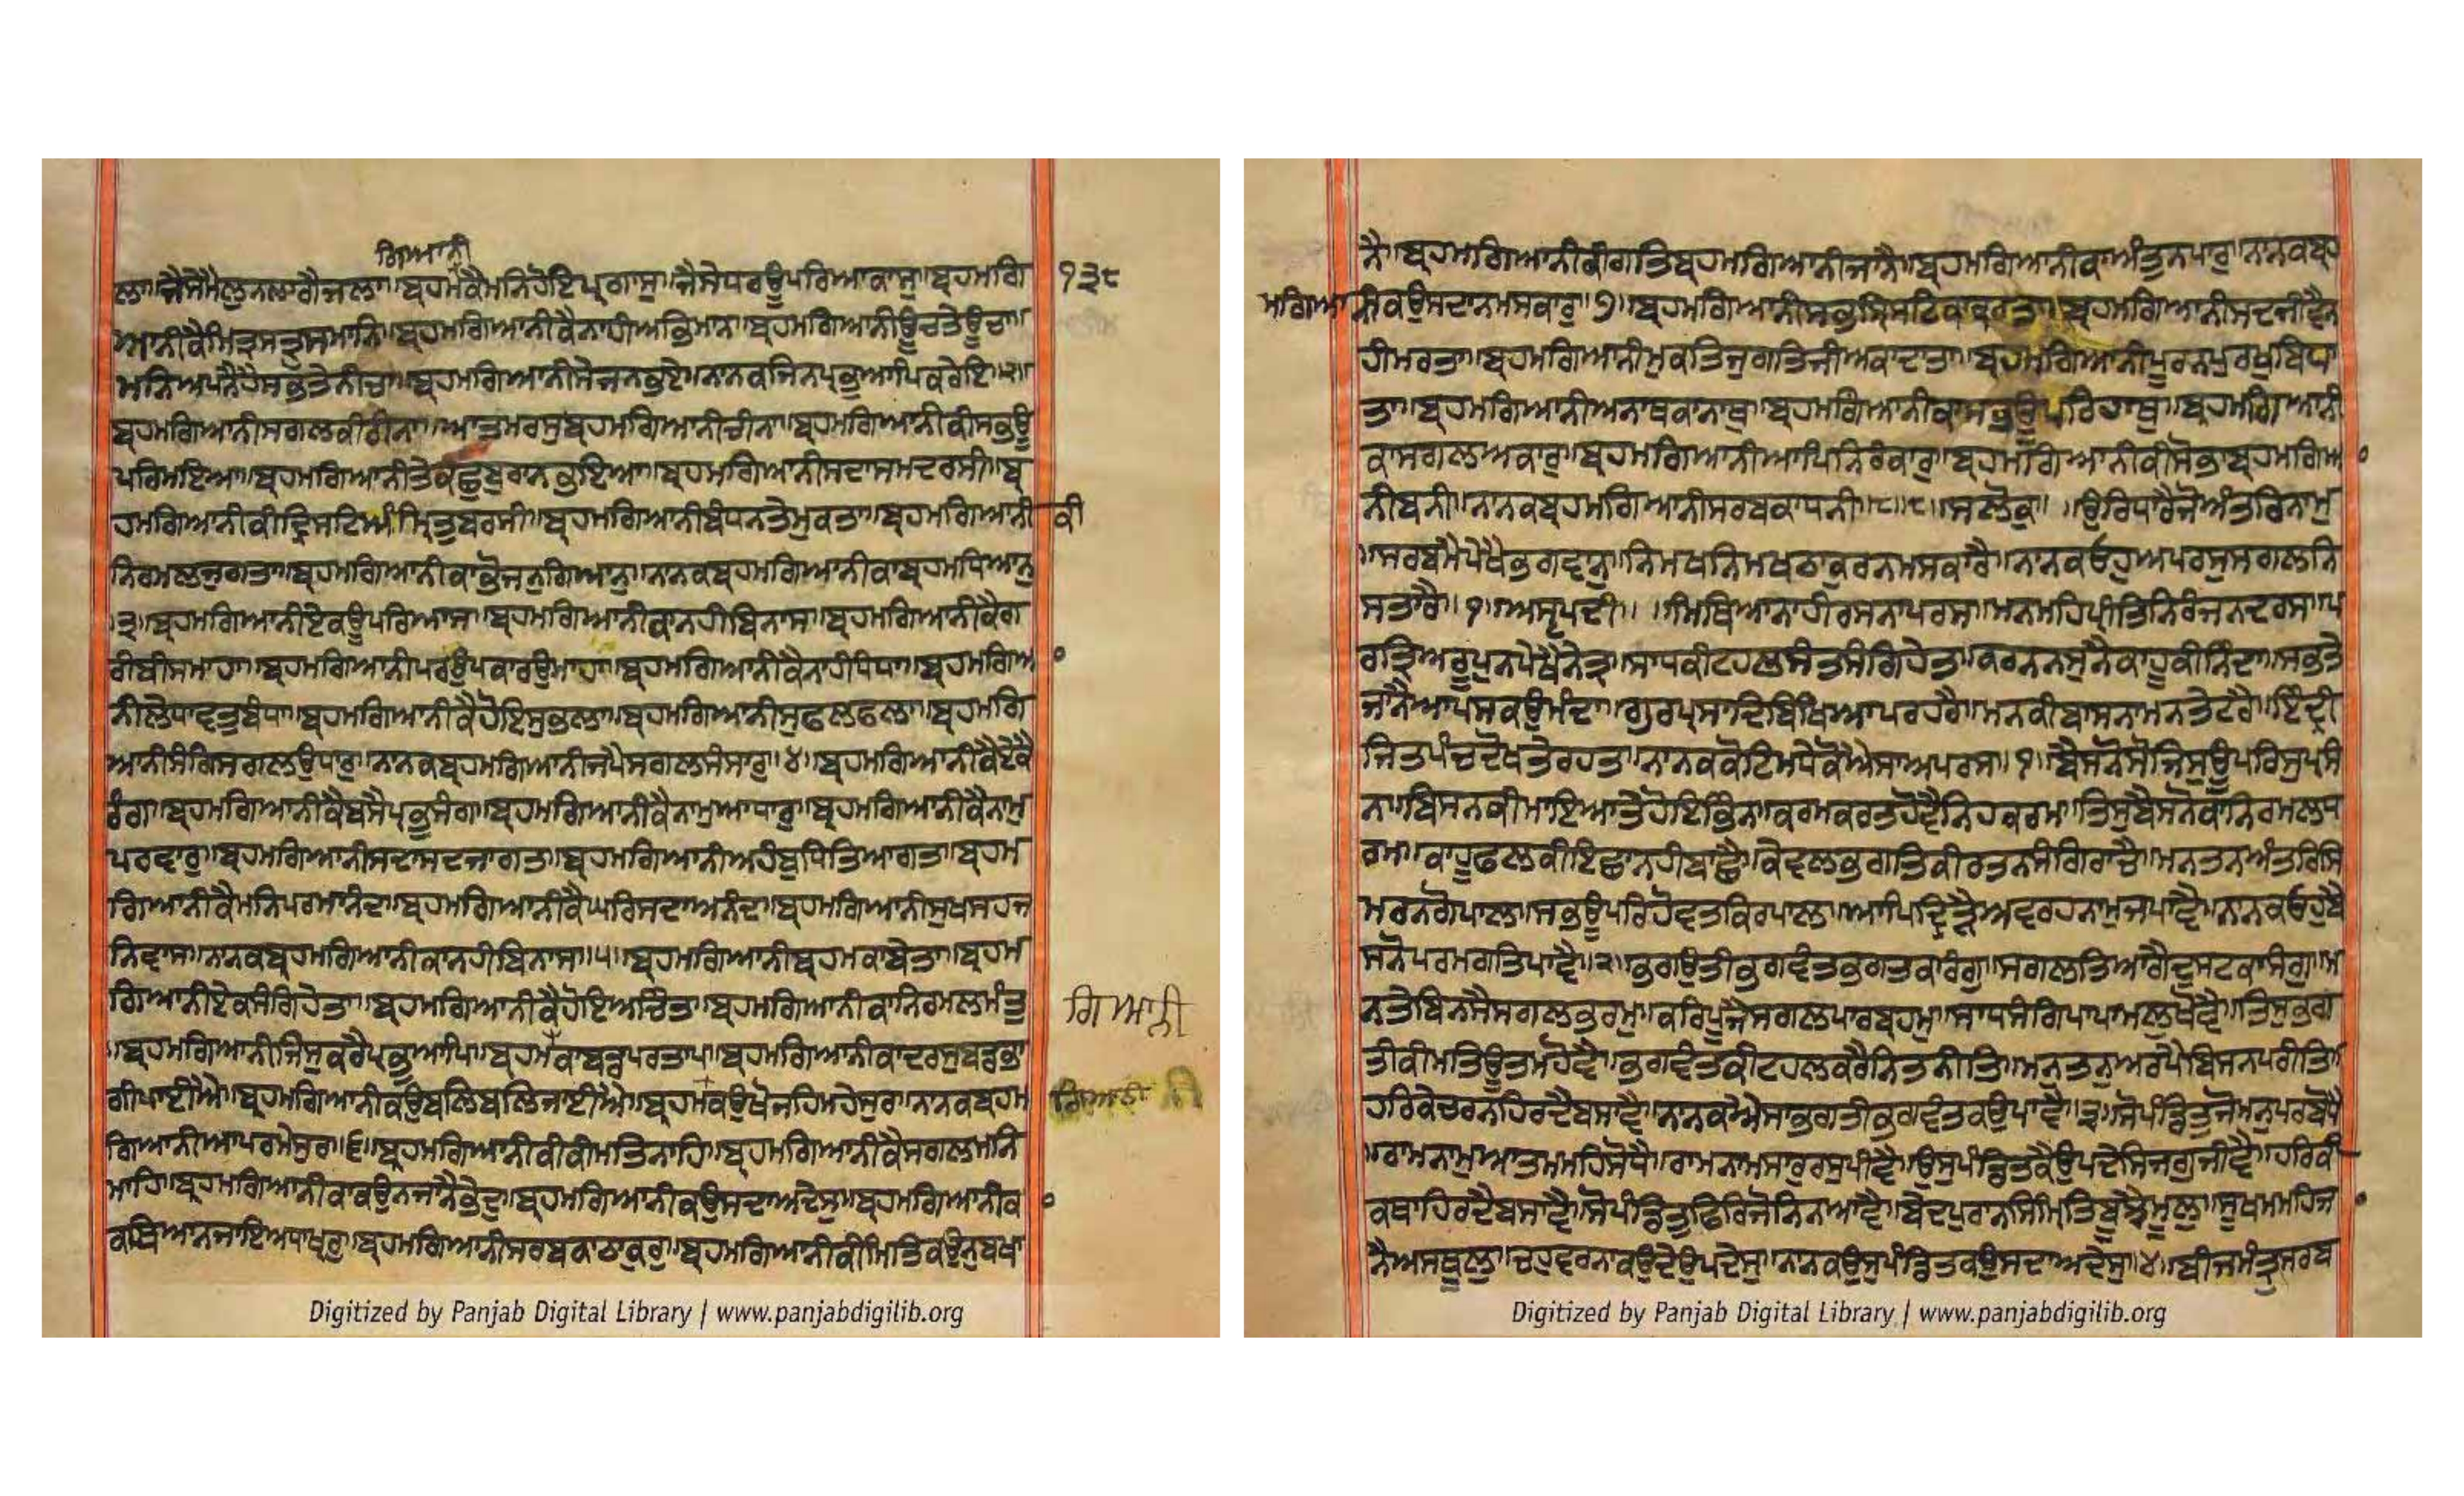 ਗਿਆਨੀ
ਲਾ॥ਜੈਸੇਮੈਲੁਨਲਾਗੈਜਲਾ॥ਬ੍ਰਹਮਕੈਮਨਿਹੋਇਪ੍ਰਗਾਸੁ॥ਜੈਸੇਧਰਊਪਰਿਆਕਾਸੁ॥ਬ੍ਰਹਮਗਿ ੧੩੮
ਆਨੀਕੈਮਿਤ੍ਰਸਤ੍ਰੁਸਮਾਨਿ॥ਬ੍ਰਹਮਗਿਆਨੀਕੈਨਾਹੀਅਭਿਮਾਨ॥ਬ੍ਰਹਮਗਿਆਨੀਊਚਤੇਊਚਾ॥
ਮਨਿਅਪਨੈਹੈਸਭਤੇਨੀਚਾ॥ਬ੍ਰਹਮਗਿਆਨੀਸੇਜਨਭਏ॥ਨਾਨਕਜਿਨਪ੍ਰਭੁਆਪਿਕਰੇਇ॥੨॥
ਬ੍ਰਹਮਗਿਆਨੀਸਗਲਕੀਰੀਨਾ॥ਆਤਮਰਸੁਬ੍ਰਹਮਗਿਆਨੀਚੀਨਾ॥ਬ੍ਰਹਮਗਿਆਨੀਕੀਸਭਊ
ਪਰਿਮਇਆ॥ਬ੍ਰਹਮਗਿਆਨੀਤੇਕਛੁਬੁਰਾਨਭਇਆ॥ਬ੍ਰਹਮਗਿਆਨੀਸਦਾਸਮਦਰਸੀ॥ਬ੍ਰ
ਹਮਗਿਆਨੀਕੀਦ੍ਰਿਸਟਿਅੰਮ੍ਰਿਤੁਬਰਸੀ॥ਬ੍ਰਹਮਗਿਆਨੀਬੰਧਨਤੇਮੁਕਤਾ॥ਬ੍ਰਹਮਗਿਆਨੀ ਕੀ
ਨਿਰਮਲਜੁਗਤਾ॥ਬ੍ਰਹਮਗਿਆਨੀਕਾਭੋਜਨੁਗਿਆਨੁ॥ਨਾਨਕਬ੍ਰਹਮਗਿਆਨੀਕਾਬ੍ਰਹਮਧਿਆਨੁ
।੩॥ਬ੍ਰਹਮਗਿਆਨੀਏਕਊਪਰਿਆਸ॥ਬ੍ਰਹਮਗਿਆਨੀਕਾਨਹੀਬਿਨਾਸ॥ਬ੍ਰਹਮਗਿਆਨੀਕੈਗ
ਰੀਬੀਸਮਾਹਾ॥ਬ੍ਰਹਮਗਿਆਨੀਪਰਉਪਕਾਰਉਮਾਹਾ॥ਬ੍ਰਹਮਗਿਆਨੀਕੈਨਾਹੀਧੰਧਾ॥ਬ੍ਰਹਮਗਿਆ
ਨੀਲੇਧਾਵਤੁਬੰਧਾ॥ਬ੍ਰਹਮਗਿਆਨੀਕੈਹੋਇਸੁਭਲਾ॥ਬ੍ਰਹਮਗਿਆਨੀਸੁਫਲਫਲਾ॥ਬ੍ਰਹਮਗਿ
ਆਨੀਸੰਗਿਸਗਲਉਧਾਰੁ॥ਨਾਨਕਬ੍ਰਹਮਗਿਆਨੀਜਪੈਸਗਲਸੰਸਾਰੁ॥੪॥ਬ੍ਰਹਮਗਿਆਨੀਕੈਏਕੈ
ਰੰਗ॥ਬ੍ਰਹਮਗਿਆਨੀਕੈਬਸੈਪ੍ਰਭੁਸੰਗ॥ਬ੍ਰਹਮਗਿਆਨੀਕੈਨਾਮੁਆਧਾਰੁ॥ਬ੍ਰਹਮਗਿਆਨੀਕੈਨਾਮੁ
ਪਰਵਾਰੁ॥ਬ੍ਰਹਮਗਿਆਨੀਸਦਾਸਦਜਾਗਤਾ॥ਬ੍ਰਹਮਗਿਆਨੀਅਹੰਬੁਧਿਤਿਆਗਤਾ॥ਬ੍ਰਹਮ
ਗਿਆਨੀਕੈਮਨਿਪਰਮਾਨੰਦ॥ਬ੍ਰਹਮਗਿਆਨੀਕੈਘਰਿਸਦਾਅਨੰਦ॥ਬ੍ਰਹਮਗਿਆਨੀਸੁਖਸਹਜ
ਨਿਵਾਸ॥ਨਾਨਕਬ੍ਰਹਮਗਿਆਨੀਕਾਨਹੀਬਿਨਾਸ॥੫॥ਬ੍ਰਹਮਗਿਆਨੀਬ੍ਰਹਮਕਾਬੇਤਾ॥ਬ੍ਰਹਮ
ਗਿਆਨੀਏਕਸੰਗਿਹੇਤਾ॥ਬ੍ਰਹਮਗਿਆਨੀਕੈਹੋਇਅਚਿੰਤਾ॥ਬ੍ਰਹਮਗਿਆਨੀਕਾਨਿਰਮਲਮੰਤੁ ਗਿਆਨੀ
॥ਬ੍ਰਹਮਗਿਆਨੀਜਿਸੁਕਰੈਪ੍ਰਭੁਆਪਿ॥ਬ੍ਰਹਮਕਾਬਡਪਰਤਾਪ॥ਬ੍ਰਹਮਗਿਆਨੀਕਾਦਰਸੁਬਡਭਾ
ਗੀਪਾਈਐ॥ਬ੍ਰਹਮਗਿਆਨੀਕਉਬਲਿਬਲਿਜਾਈਐ॥ਬ੍ਰਹਮਕਉਖੋਜਹਿਮਹੇਸੁਰ॥ਨਾਨਕਬ੍ਰਹਮ ਗਿਆਨੀ
ਗਿਆਨੀਆਪਰਮੇਸੁਰ॥੬॥ਬ੍ਰਹਮਗਿਆਨੀਕੀਕੀਮਤਿਨਾਹਿ॥ਬ੍ਰਹਮਗਿਆਨੀਕੈਸਗਲਮਨਿ
ਮਾਹਿ॥ਬ੍ਰਹਮਗਿਆਨੀਕਾਕਉਨਜਾਨੈਭੇਦੁ॥ਬ੍ਰਹਮਗਿਆਨੀਕਉਸਦਾਅਦੇਸੁ॥ਬ੍ਰਹਮਗਿਆਨੀਕ
ਕਥਿਆਨਜਾਇਅਧਾਖ੍ਯਰੁ॥ਬ੍ਰਹਮਗਿਆਨੀਸਰਬਕਾਠਾਕੁਰੁ॥ਬ੍ਰਹਮਗਿਆਨੀਕੀਮਿਤਿਕਉਨੁਬਖਾ
Digitized by Panjab Digital Library | www.panjabdigilib.org
ਨੈ॥ਬ੍ਰਹਮਗਿਆਨੀਕੀਗਤਿਬ੍ਰਹਮਗਿਆਨੀਜਾਨੈ॥ਬ੍ਰਹਮਗਿਆਨੀਕਾਅੰਤੁਨਪਾਰੁ॥ਨਾਨਕਬ੍ਰਹ
ਮਗਿਆਨੀਕਉਸਦਾਨਮਸਕਾਰੁ॥੭॥ਬ੍ਰਹਮਗਿਆਨੀਸਭਸ੍ਰਿਸਟਿਕਾਕਰਤਾ॥ਬ੍ਰਹਮਗਿਆਨੀਸਦਜੀਵੈਨ
ਹੀਮਰਤਾ॥ਬ੍ਰਹਮਗਿਆਨੀਮੁਕਤਿਜੁਗਤਿਜੀਅਕਾਦਾਤਾ॥ਬ੍ਰਹਮਗਿਆਨੀਪੂਰਨਪੁਰਖੁਬਿਧਾ
ਤਾ॥ਬ੍ਰਹਮਗਿਆਨੀਅਨਾਥਕਾਨਾਥੁ॥ਬ੍ਰਹਮਗਿਆਨੀਕਾਸਭਊਪਰਿਹਾਥੁ॥ਬ੍ਰਹਮਗਿਆਨੀ
ਕਾਸਗਲਅਕਾਰੁ॥ਬ੍ਰਹਮਗਿਆਨੀਆਪਿਨਿਰੰਕਾਰੁ॥ਬ੍ਰਹਮਗਿਆਨੀਕੀਸੋਭਾਬ੍ਰਹਮਗਿਆ
ਨੀਬਨੀ॥ਨਾਨਕਬ੍ਰਹਮਗਿਆਨੀਸਰਬਕਾਧਨੀ॥੮॥੮॥ਸਲੋਕੁ॥ ॥ਉਰਿਧਾਰੈਜੋਅੰਤਰਿਨਾਮੁ
॥ਸਰਬਮੈਪੇਖੈਭਗਵਾਨੁ॥ਨਿਮਖਨਿਮਖਠਾਕੁਰਨਮਸਕਾਰੈ॥ਨਾਨਕਓਹੁਅਪਰਸੁਸਗਲਨਿ
ਸਤਾਰੈ॥੧॥ਅਸਟਪਦੀ॥ ॥ਮਿਥਿਆਨਾਹੀਰਸਨਾਪਰਸ॥ਮਨਮਹਿਪ੍ਰੀਤਿਨਿਰੰਜਨਦਰਸ॥ਪ
ਰਤ੍ਰਿਅਰੂਪੁਨਪੇਖੈਨੇਤ੍ਰ॥ਸਾਧਕੀਟਹਲਸੰਤਸੰਗਿਹੇਤ॥ਕਰਨਨਸੁਨੈਕਾਹੂਕੀਨਿੰਦਾ॥ਸਭਤੇ
ਜਾਨੈਆਪਸਕਉਮੰਦਾ॥ਗੁਰਪ੍ਰਸਾਦਿਬਿਖਿਆਪਰਹਰੈ॥ਮਨਕੀਬਾਸਨਾਮਨਤੇਟਰੈ॥ਇੰਦ੍ਰੀ
ਜਿਤਪੰਚਦੋਖਤੇਰਹਤ॥ਨਾਨਕਕੋਟਿਮਧੇਕੋਐਸਾਅਪਰਸ॥੧॥ਬੈਸਨੋਸੋਜਿਸੁਊਪਰਿਸੁਪ੍ਰਸੰ
ਨ॥ਬਿਸਨਕੀਮਾਇਆਤੇਹੋਇਭਿੰਨ॥ਕਰਮਕਰਤਹੋਵੈਨਿਹਕਰਮ॥ਤਿਸੁਬੈਸਨੋਕਾਨਿਰਮਲਧ
ਰਮ॥ਕਾਹੂਫਲਕੀਇਛਾਨਹੀਬਾਛੈ॥ਕੇਵਲਭਗਤਿਕੀਰਤਨਸੰਗਿਰਾਚੈ॥ਮਨਤਨਅੰਤਰਿਸਿ
ਮਰਨਗੋਪਾਲ॥ਸਭਊਪਰਿਹੋਵਤਕਿਰਪਾਲ॥ਆਪਿਦ੍ਰਿੜੈਅਵਰਹਨਾਮੁਜਪਾਵੈ॥ਨਾਨਕਓਹੁਬੈ
ਸਨੋਪਰਮਗਤਿਪਾਵੈ॥੨॥ਭਗਉਤੀਭਗਵੰਤਭਗਤਕਾਰੰਗੁ॥ਸਗਲਤਿਆਗੈਦੁਸਟਕਾਸੰਗੁ॥ਮ
ਨਤੇਬਿਨਸੈਸਗਲਭਰਮੁ॥ਕਰਿਪੂਜੈਸਗਲਪਾਰਬ੍ਰਹਮੁ॥ਸਾਧਸੰਗਿਪਾਪਾਮਲੁਖੋਵੈ॥ਤਿਸੁਭਗ
ਤੀਕੀਮਤਿਊਤਮਹੋਵੈ॥ਭਗਵੰਤਕੀਟਹਲਕਰੈਨਿਤਨੀਤਿ॥ਮਨੁਤਨੁਅਰਪੈਬਿਸਨਪਰੀਤਿ॥
ਹਰਿਕੇਚਰਨਹਿਰਦੈਬਸਾਵੈ॥ਨਾਨਕਐਸਾਭਗਤੀਭਗਵੰਤਕਉਪਾਵੈ॥੩॥ਸੋਪੰਡਿਤੁਜੋਮਨੁਪਰਬੋਧੈ
॥ਰਾਮਨਾਮੁਆਤਮਮਹਿਸੋਧੈ॥ਰਾਮਨਾਮਸਾਰੁਰਸੁਪੀਵੈ॥ਉਸੁਪੰਡਿਤਕੈਉਪਦੇਸਿਜਗੁਜੀਵੈ॥ਹਰਿਕੀ
ਕਥਾਹਿਰਦੈਬਸਾਵੈ॥ਸੋਪੰਡਿਤੁਫਿਰਿਜੋਨਿਨਆਵੈ॥ਬੇਦਪੁਰਾਨਸਿੰਮ੍ਰਿਤਿਬੂਝੈਮੂਲੁ॥ਸੂਖਮਮਹਿਜਾ
ਨੈਅਸਥੂਲੁ॥ਚਹੁਵਰਨਾਕਉਦੇਉਪਦੇਸੁ॥ਨਾਨਕਉਸੁਪੰਡਿਤਕਉਸਦਾਅਦੇਸੁ॥੪॥ਬੀਜਮੰਤ੍ਰੁਸਰਬ
Digitized by Panjab Digital Library | www.panjabdigilib.org